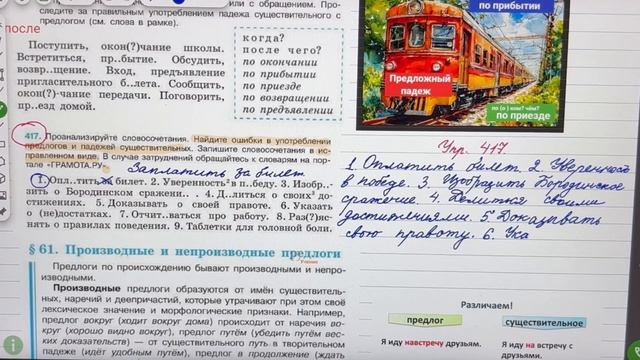 или обращении. Про-
следите за правильным употреблением падежа существительного с
предлогом (см. слова в рамке).
после
Поступить, окон(?)чание школы.
Встретиться, пр..бытие. Обсудить,
возвр..щение. Вход, предъявление
пригласительного б..лета. Сообщить,
окон(?)чание передачи. Поговорить,
пр..езд домой.
когда?
после чего?
по окончании
по прибытии
по приезде
по возвращении
по предъявлении
по прибытии
Предложный
падеж
по (о) ком? чём?
по приезде
417. Проанализируйте словосочетания. Найдите ошибки в употреблении
предлогов и падежей существительных. Запишите словосочетания в ис-
правленном виде. В случае затруднений обращайтесь к словарям на пор-
тале «ГРАМОТА.РУ».
Заплатить за билет
1. Опл..тить за билет. 2. Уверенность³ в п..беду. 3. Изобр..-
зить о Бородинском сражени.. . 4. Д..литься о своих³ до-
стижениях. 5. Доказывать о своей правоте. 6. Указать
о (не)достатках. 7. Отчит..ваться про работу. 8. Раз(?)яс-
нять о правилах поведения. 9. Таблетки для головной боли.
Упр. 417
1. Оплатить билет. 2. Уверенность
в победе. 3. Изобразить Бородинское
сражение. 4. Делиться своими
достижениями. 5 Доказывать
свою правоту. 6. Ука
§ 61. Производные и непроизводные предлоги
Предлоги по происхождению бывают производными и непро-
изводными.
Производные предлоги образуются от имён существитель-
ных, наречий и деепричастий, которые утрачивают при этом своё
лексическое значение и морфологические признаки. Например,
предлог вокруг (ходит вокруг дома) происходит от наречия во-
круг (хорошо видно вокруг), предлог путём (убедить путём вес-
ких доказательств) — от существительного путь в творительном
падеже (идёт удобным путём), предлог в продолжение (ждать
Различаем!
предлог
существительное
Я иду навстречу друзьям.
Я иду на встречу с
друзьями.